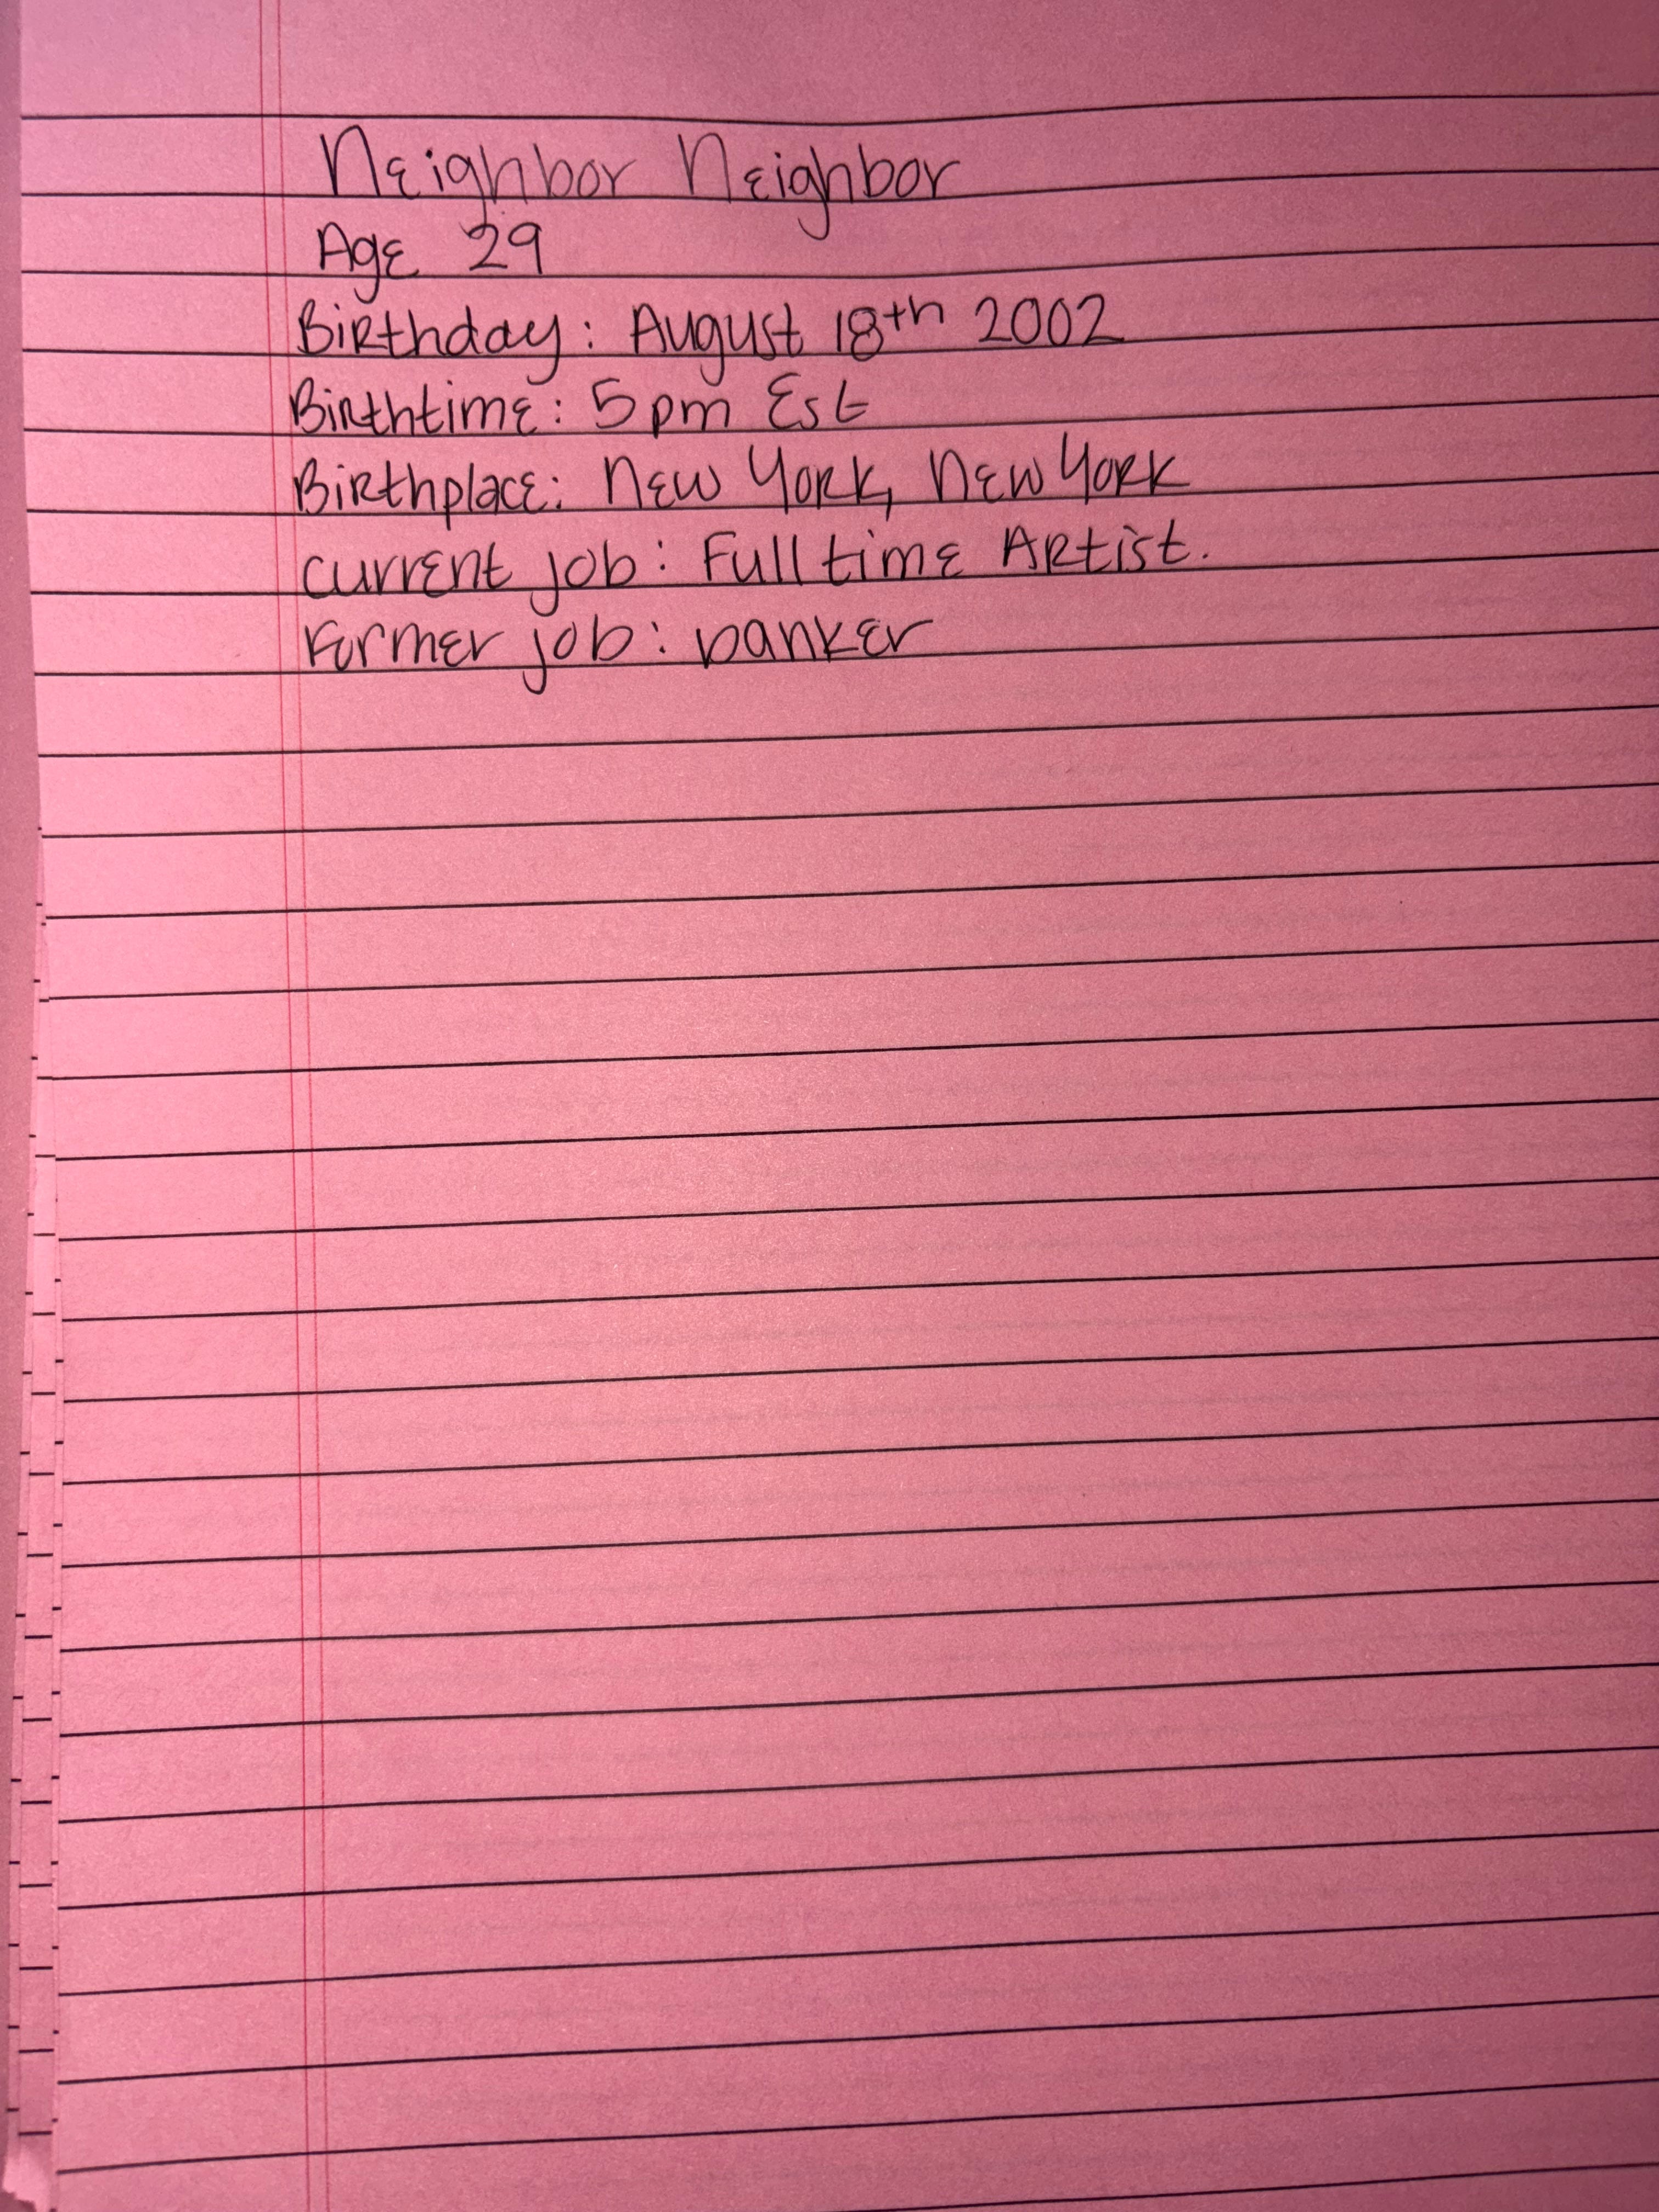 Neighbor Neighbor
Age 29
Birthday: August 18th 2002
Birthtime: 5pm Est
Birthplace: New York, New York
current job: Full time Artist.
Former job: banker